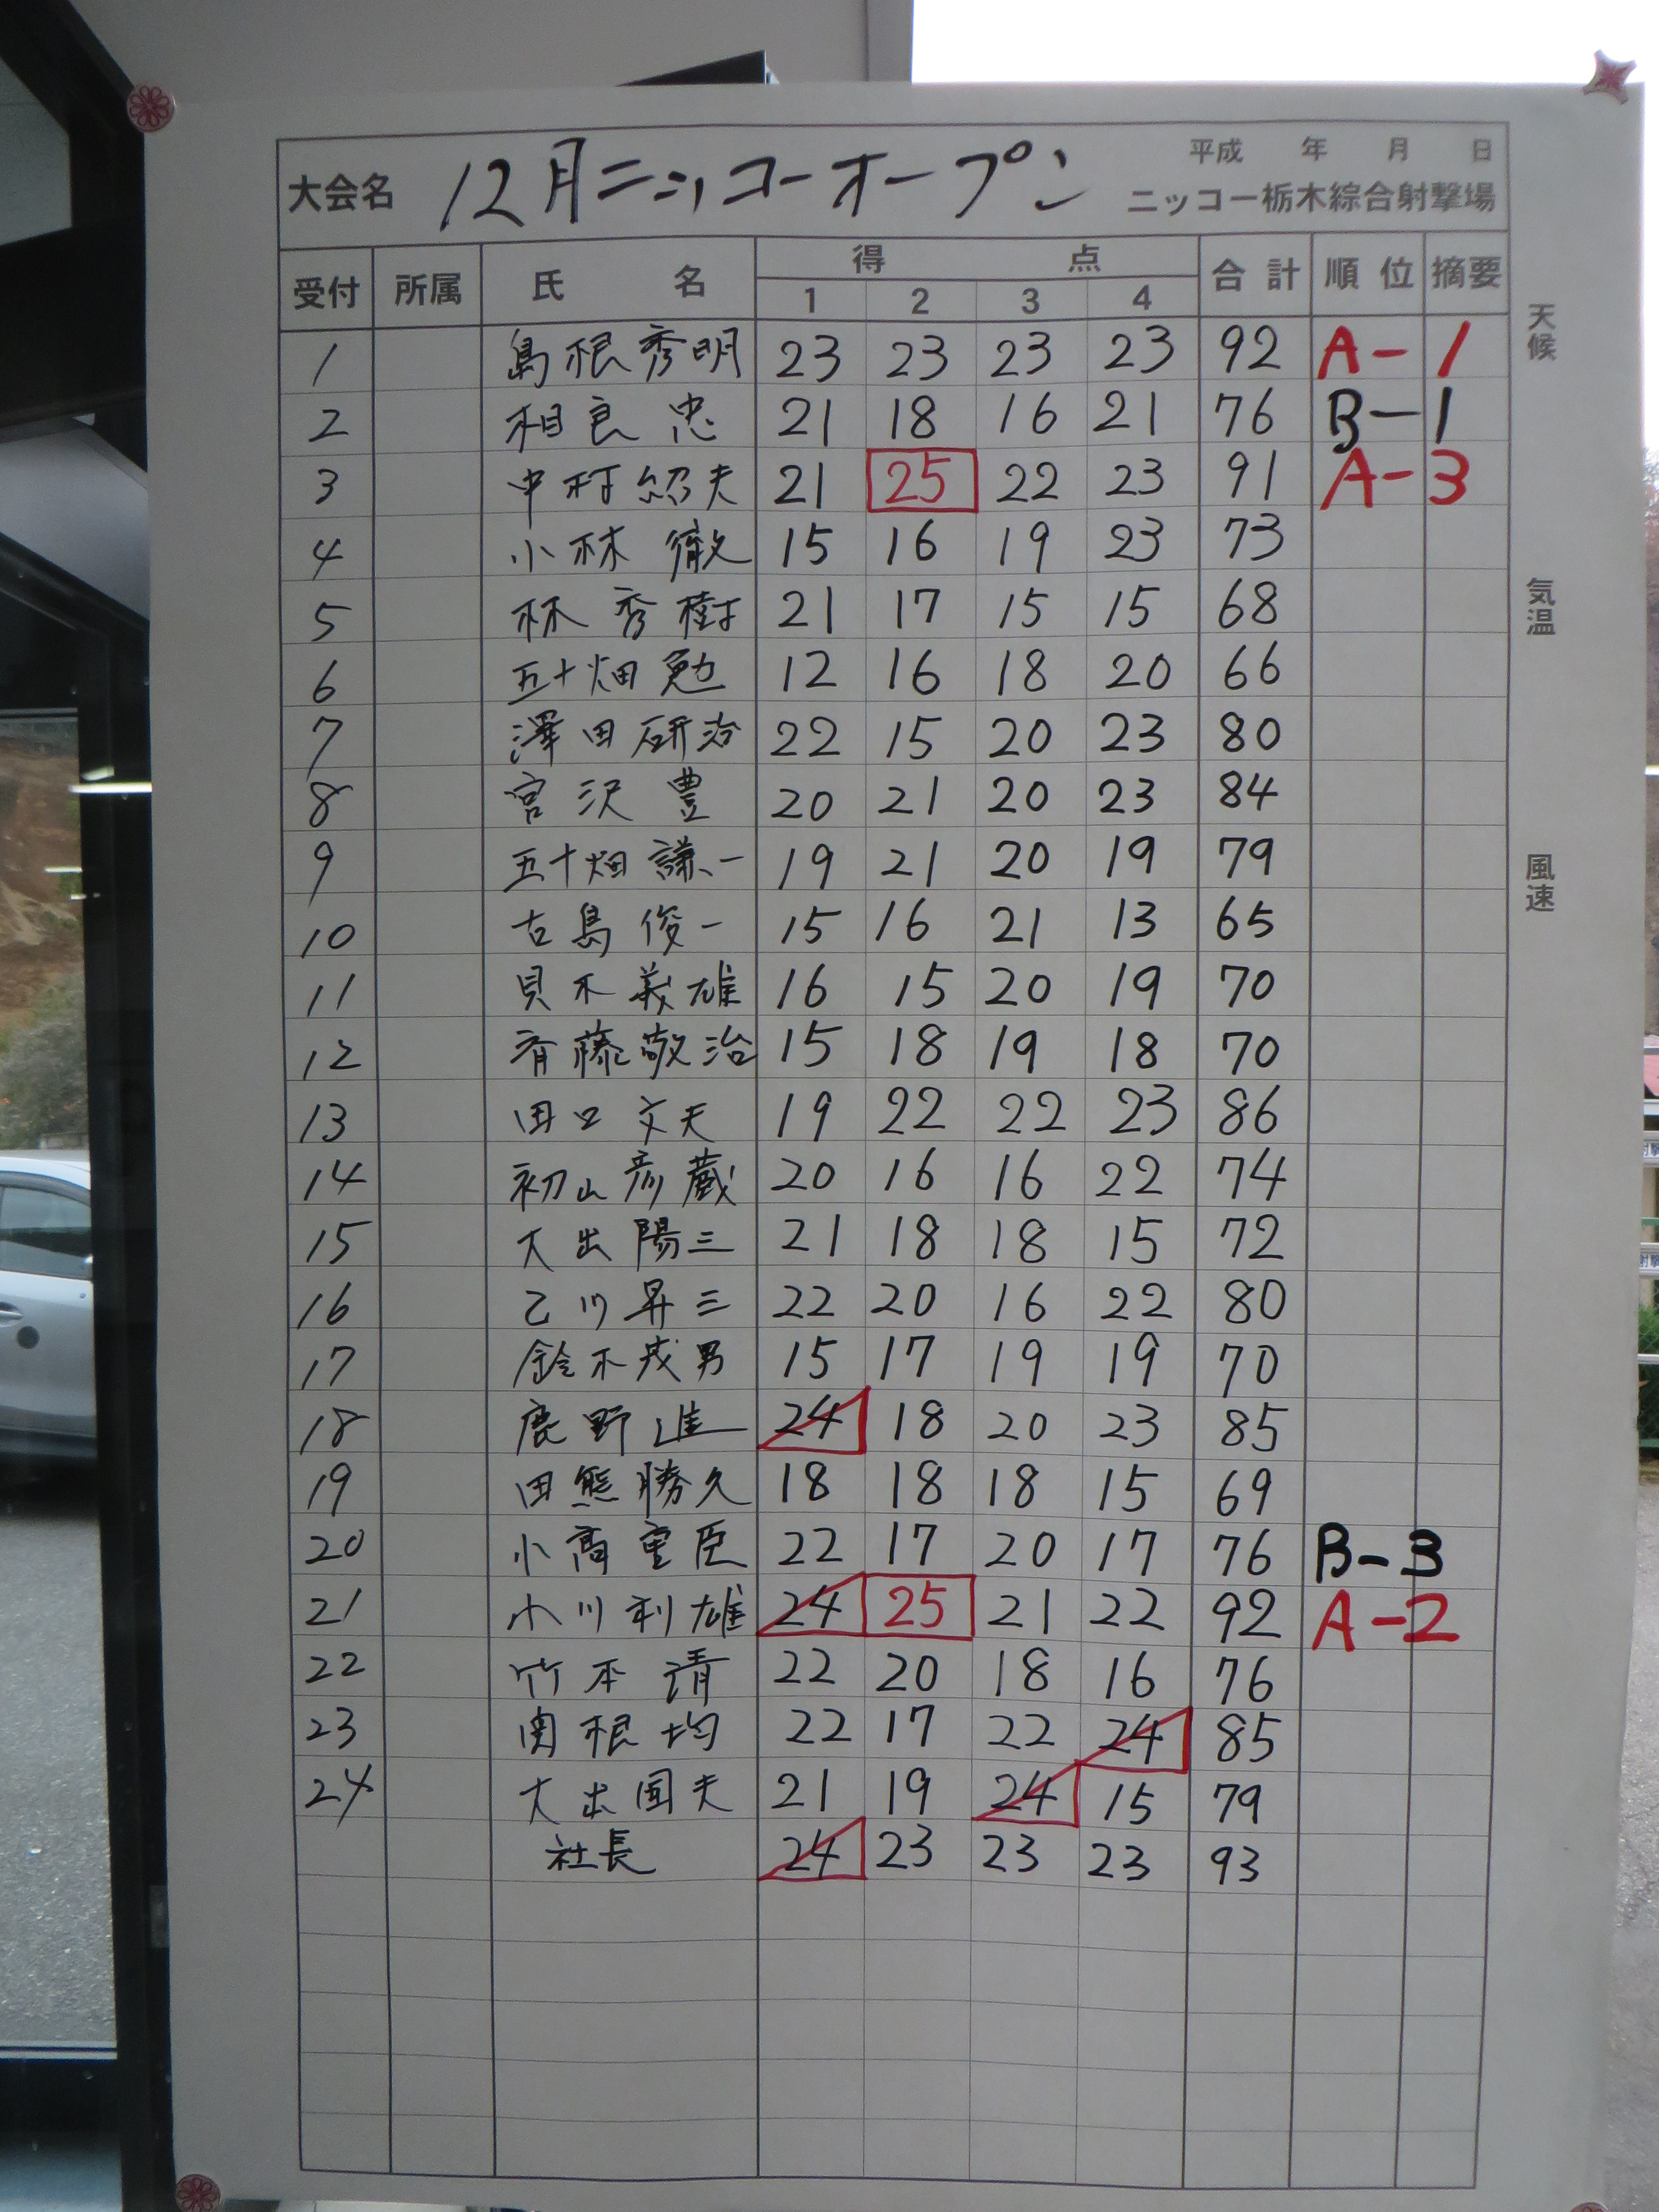 平成 年 月 日
大会名 12月ニッコーオープン ニッコー栃木綜合射撃場
受付 所属 氏 名 得 点 合計 順位 摘要
1 2 3 4
1 島根秀明 23 23 23 23 92 A-1
2 相良 忠 21 18 16 21 76 B-1
3 中村紹夫 21 25 22 23 91 A-3
4 小林 徹 15 16 19 23 73
5 林 秀樹 21 17 15 15 68
6 五十畑 勉 12 16 18 20 66
7 澤田研治 22 15 20 23 80
8 宮沢 豊 20 21 20 23 84
9 五十畑 謙一 19 21 20 19 79
10 古島俊一 15 16 21 13 65
11 貝木義雄 16 15 20 19 70
12 斉藤敬治 15 18 19 18 70
13 田口文夫 19 22 22 23 86
14 初山彦蔵 20 16 16 22 74
15 大出陽三 21 18 18 15 72
16 乙川昇三 22 20 16 22 80
17 鈴木茂男 15 17 19 19 70
18 鹿野進 24 18 20 23 85
19 田熊勝久 18 18 18 15 69
20 小高重臣 22 17 20 17 76 B-3
21 小川利雄 24 25 21 22 92 A-2
22 竹本 清 22 20 18 16 76
23 関根均 22 17 22 24 85
24 大出国夫 21 19 24 15 79
社長 24 23 23 23 93
天候
気温
風速